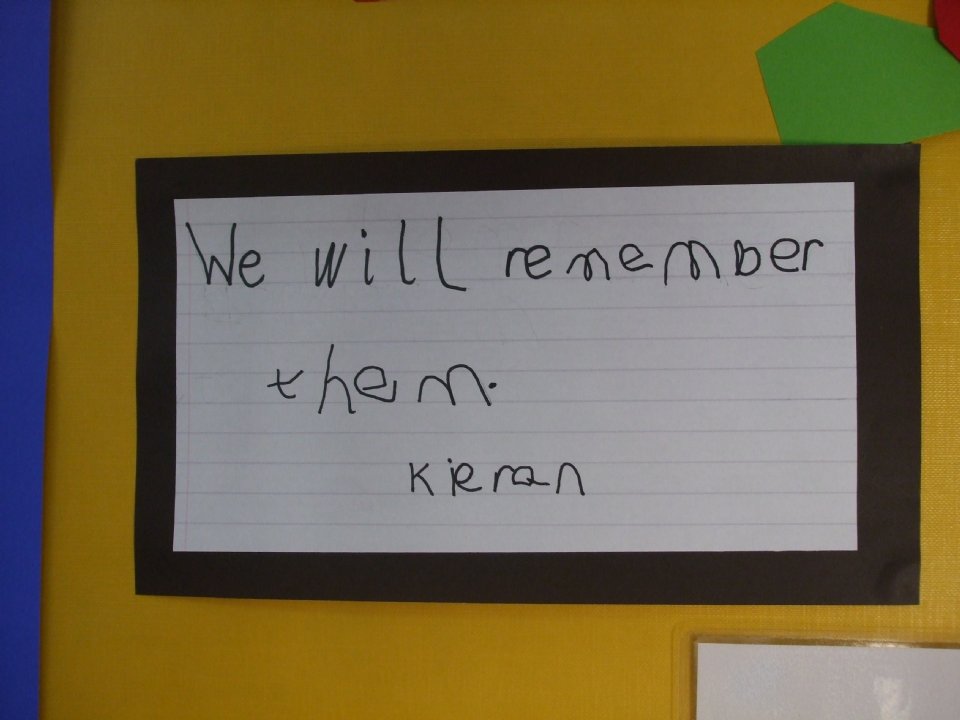 We will remember
them.
Kieran